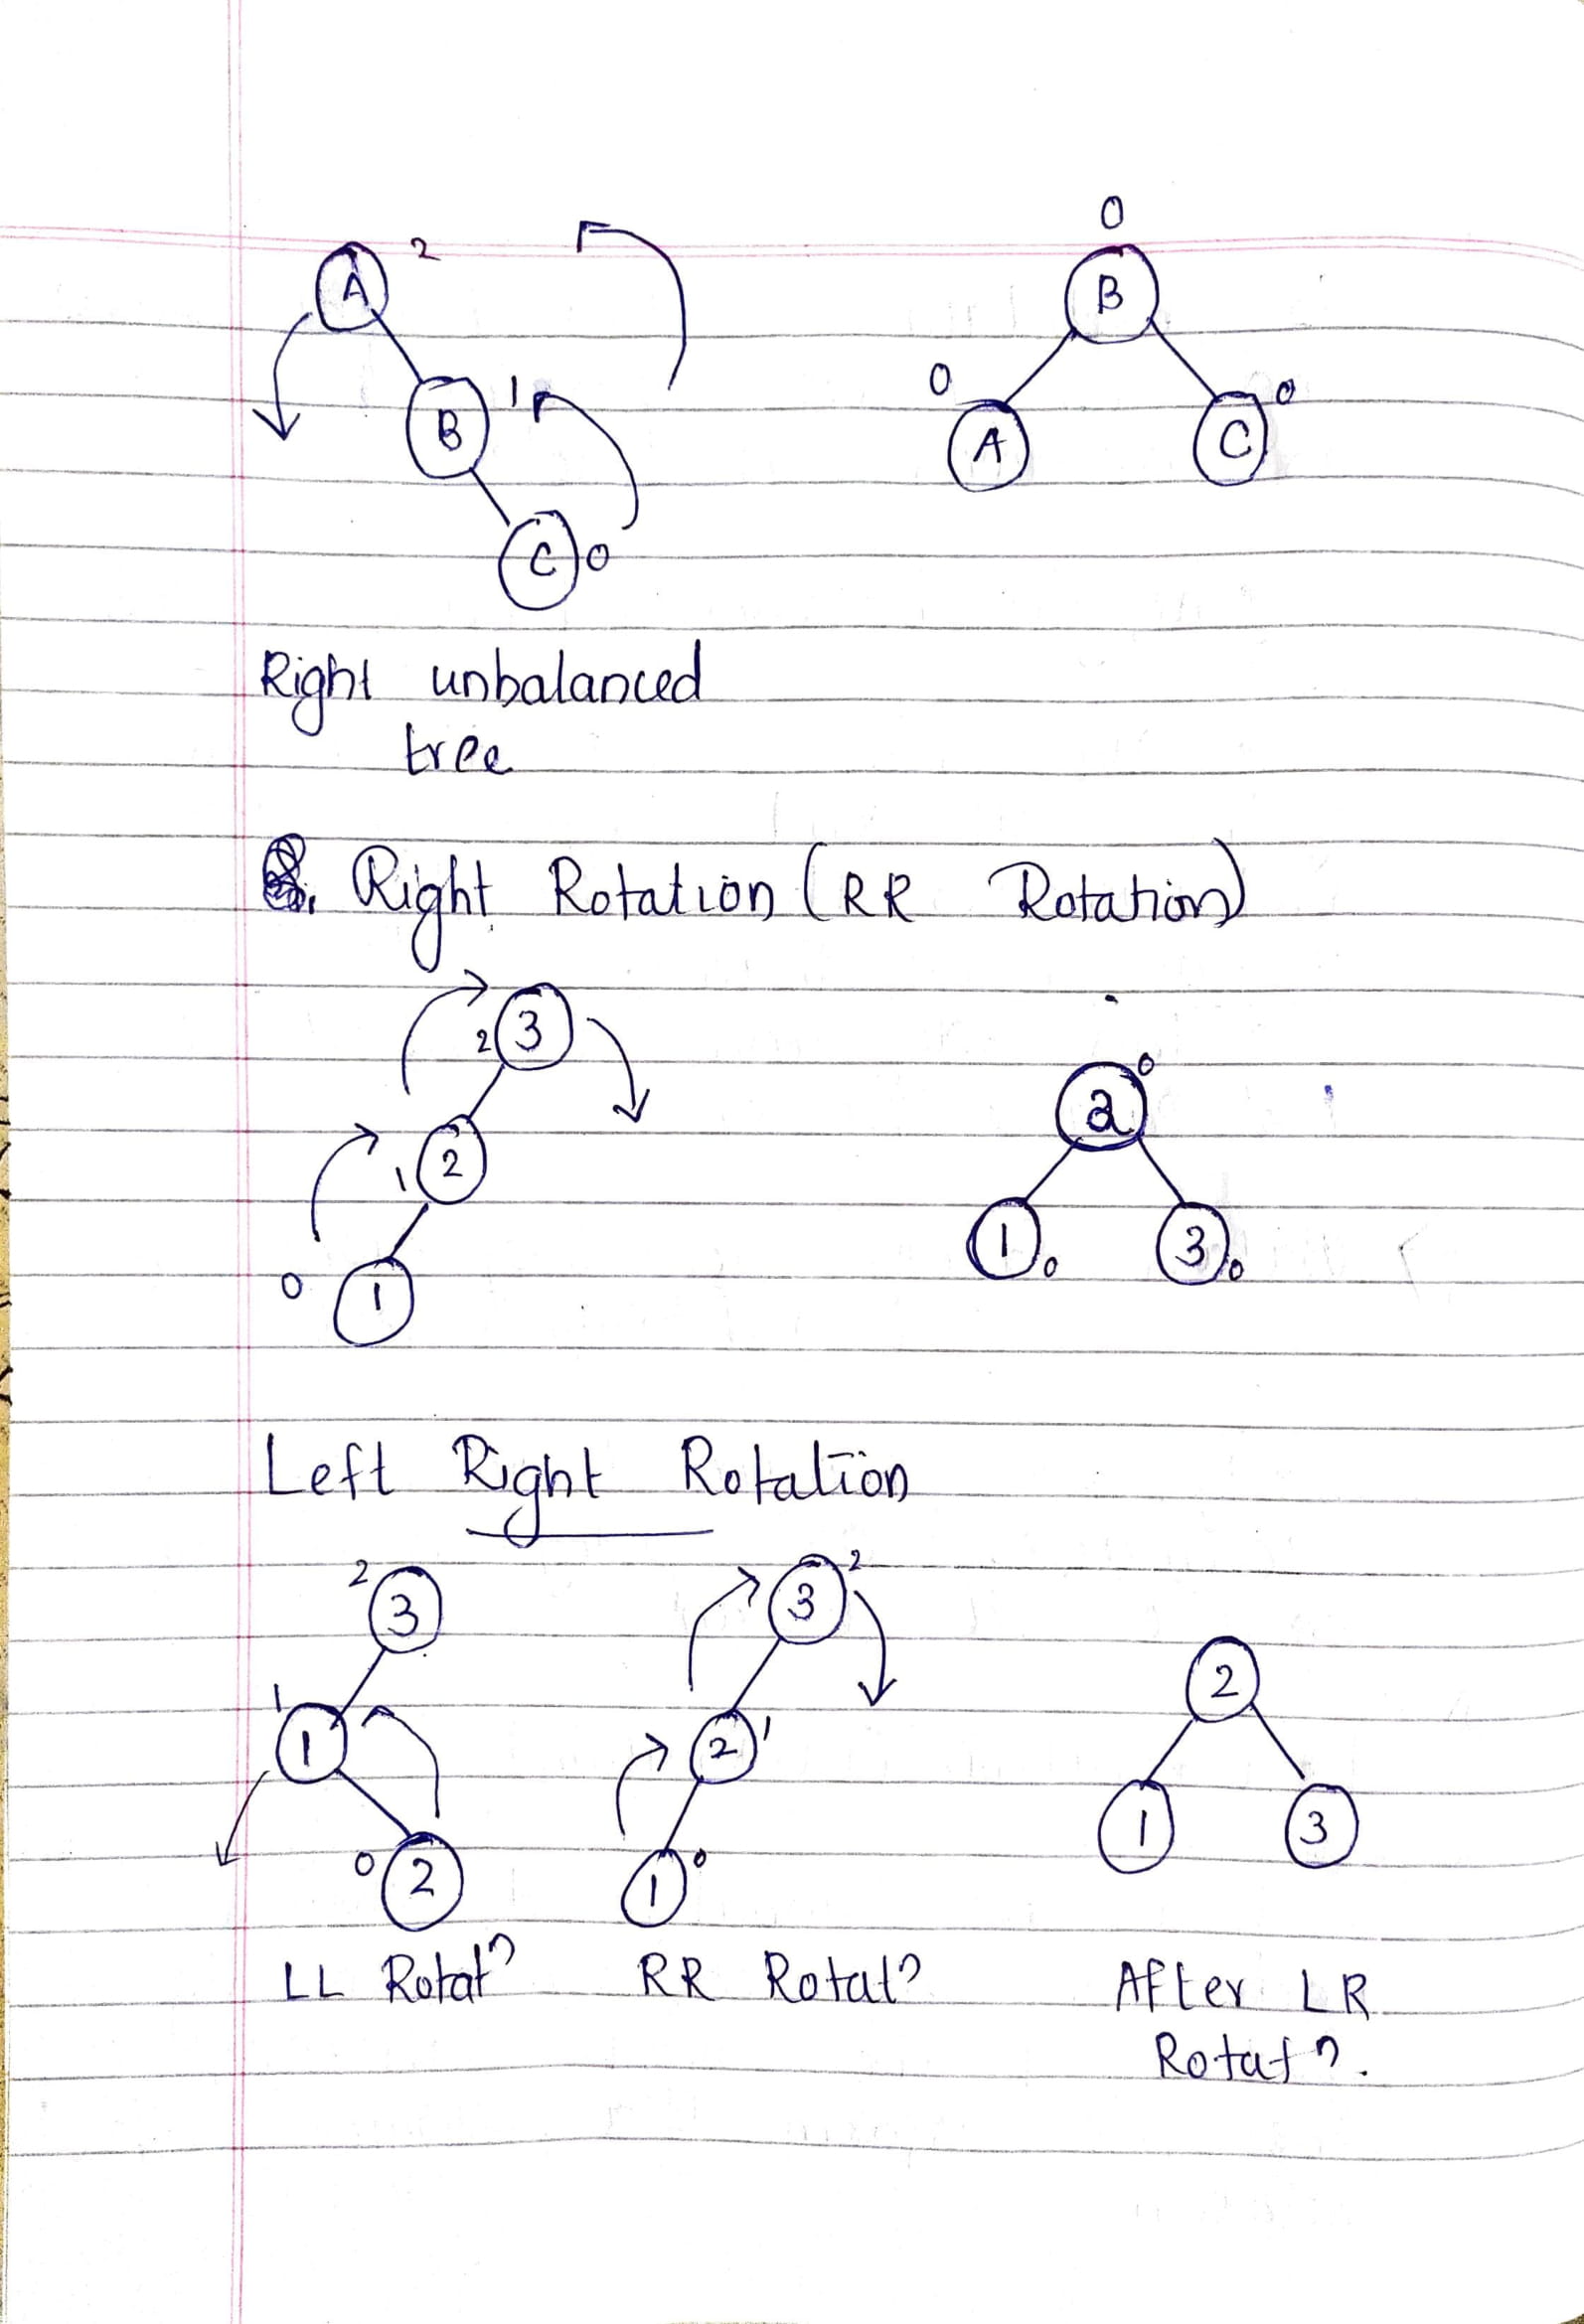 0
A 2 B
B 1 0 A C 0
C 0
Right unbalanced
tree
Right Rotation (RR Rotation)
2 3
2 0
1 2
1 0 3 0
0 1
Left Right Rotation
2 3 3 2
1 2
1 2 1
1 3
0 2 1 0
LL Rotatn RR Rotatn After LR
Rotatn.